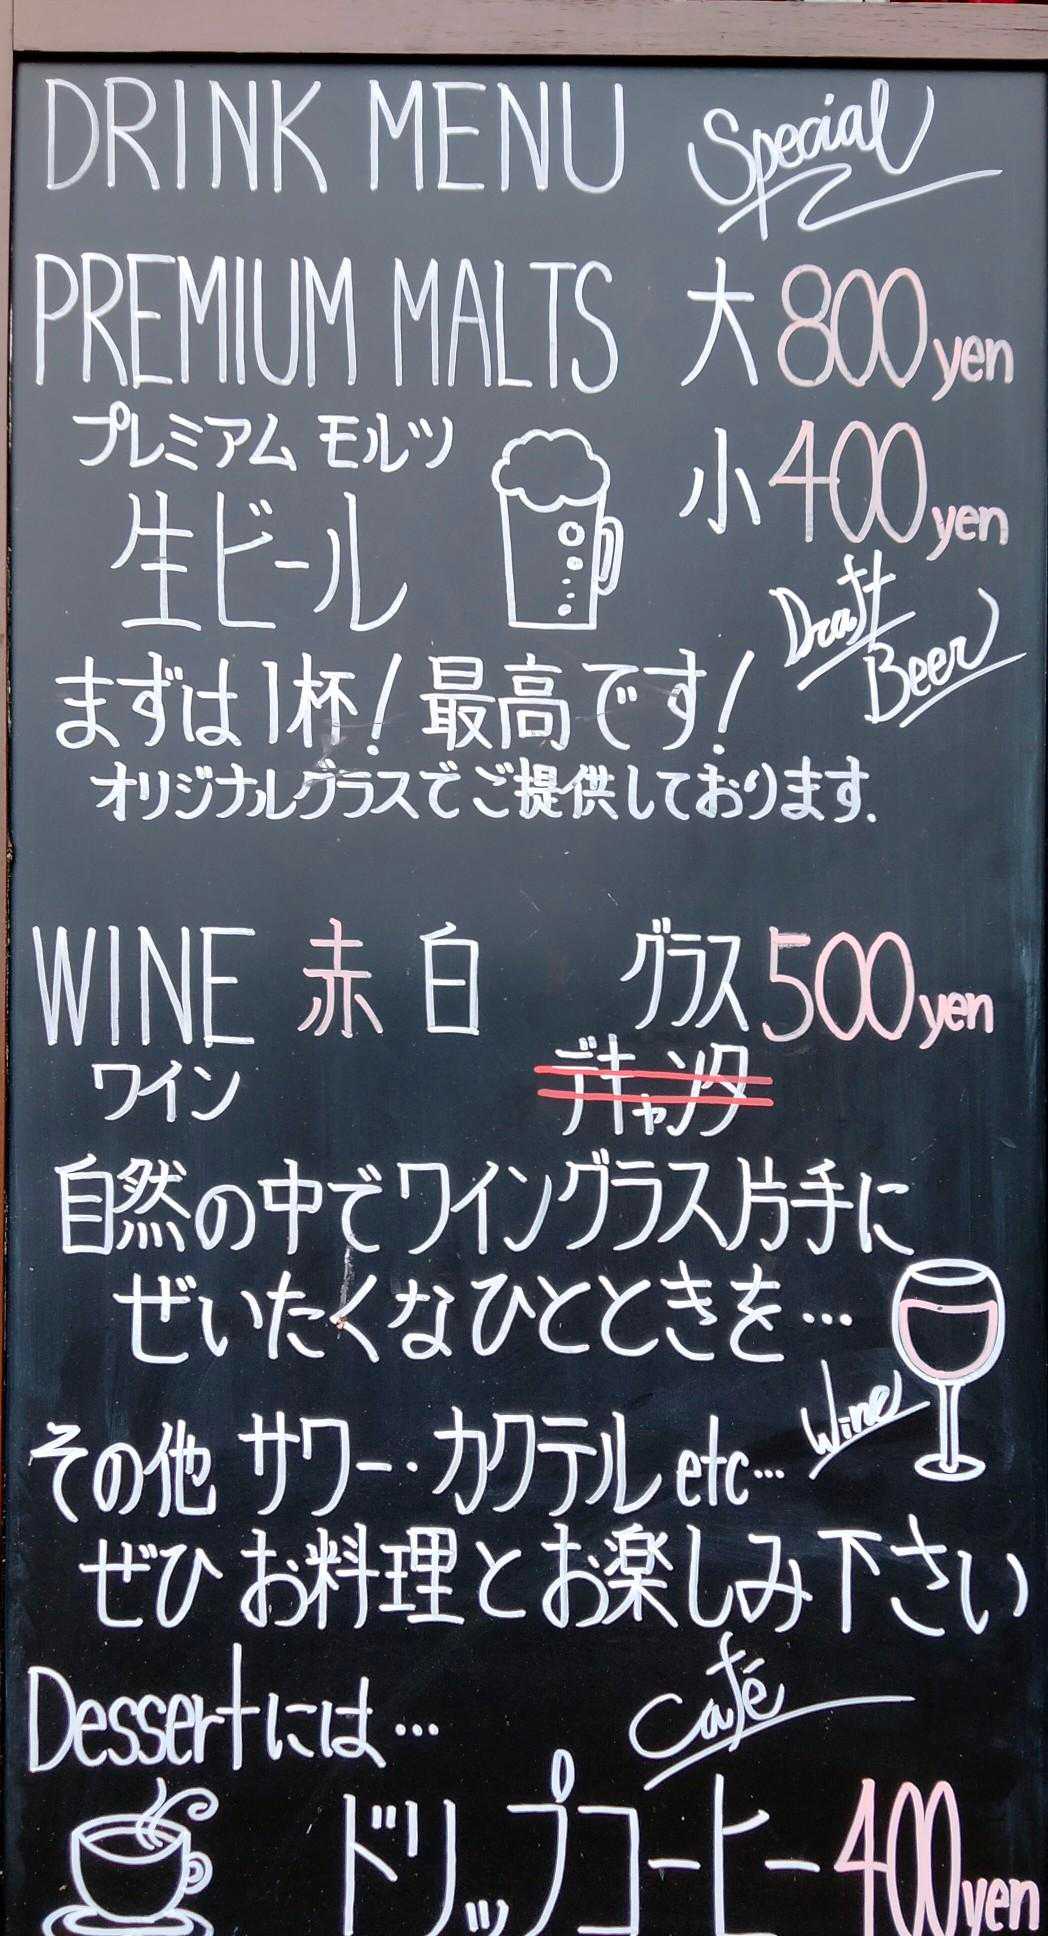 DRINK MENU Special
PREMIUM MALTS 大 800yen
プレミアム モルツ 小 400yen
生ビール
Draft
Beer
まずは1杯！最高です！
オリジナルグラスでご提供しております.
WINE 赤 白 グラス 500yen
ワイン デキャンタ
自然の中でワイングラス片手に
ぜいたくなひとときを…
Wine
その他 サワー・カクテル etc…
ぜひ お料理とお楽しみ下さい
Dessertには… Café
ドリップコーヒー 400yen